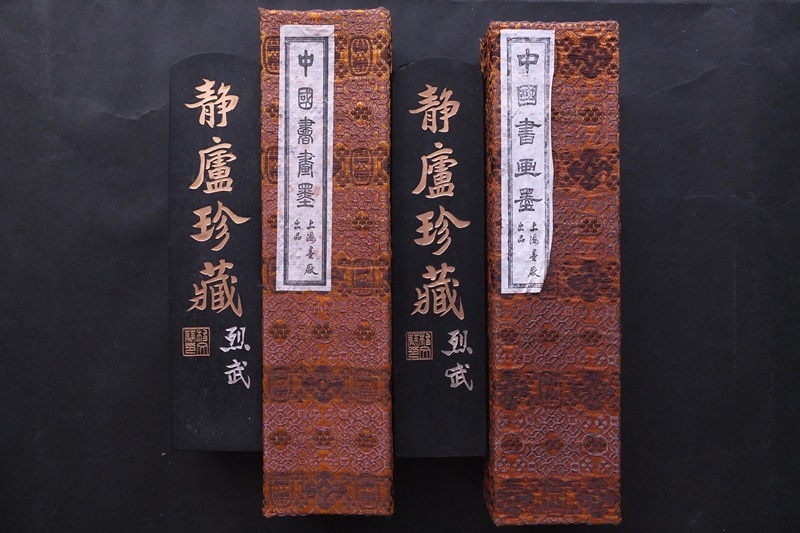 静廬珍藏
烈武
中國書畫墨
上海墨厰
出品
静廬珍藏
烈武
中國書画墨
上海墨厰
出品